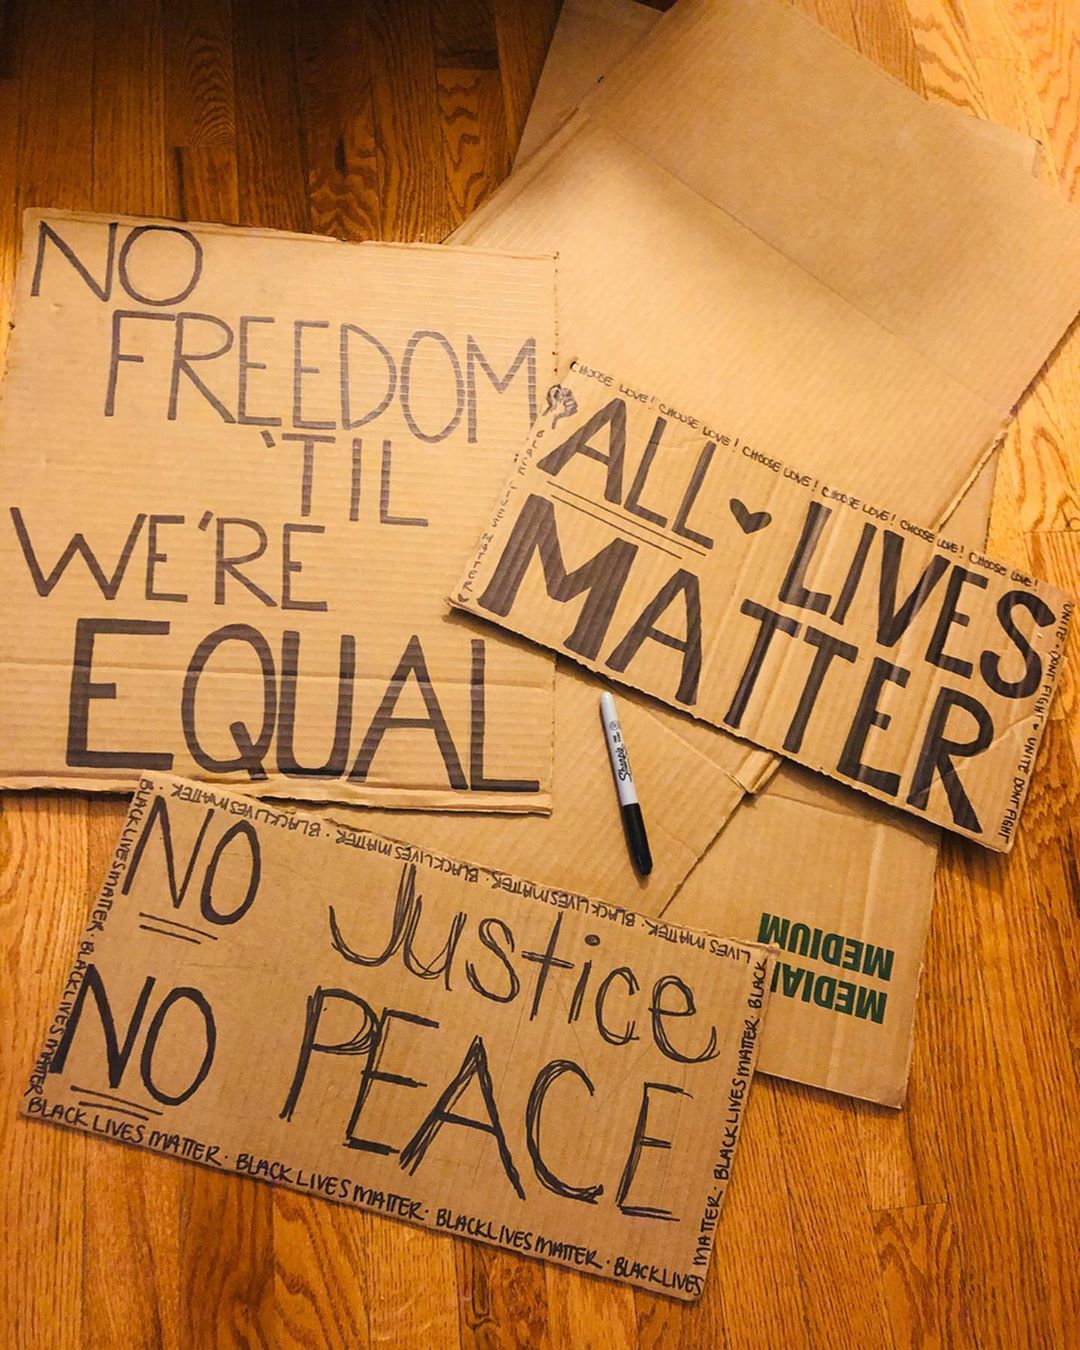 NO
FREEDOM
'TIL
WE'RE
EQUAL
CHOOSE LOVE! CHOOSE LOVE! CHOOSE LOVE! CHOOSE LOVE! CHOOSE LOVE! CHOOSE LOVE!
BLACK LIVES MATTER
ALL LIVES
MATTER
UNITE · DONT FIGHT · UNITE DONT FIGHT
Sharpie
BLACK LIVES MATTER · BLACK LIVES MATTER
BLACK LIVES MATTER · BLACK LIVES MATTER · BLACK LIVES MATTER · BLACK LIVES MATTER
NO Justice
NO PEACE
BLACK LIVES MATTER · BLACK LIVES MATTER · BLACK LIVES MATTER · BLACK LIVES
MATTER · BLACK LIVES MATTER · BLACK
LIVES MATTER
MEDIUM
MEDIA